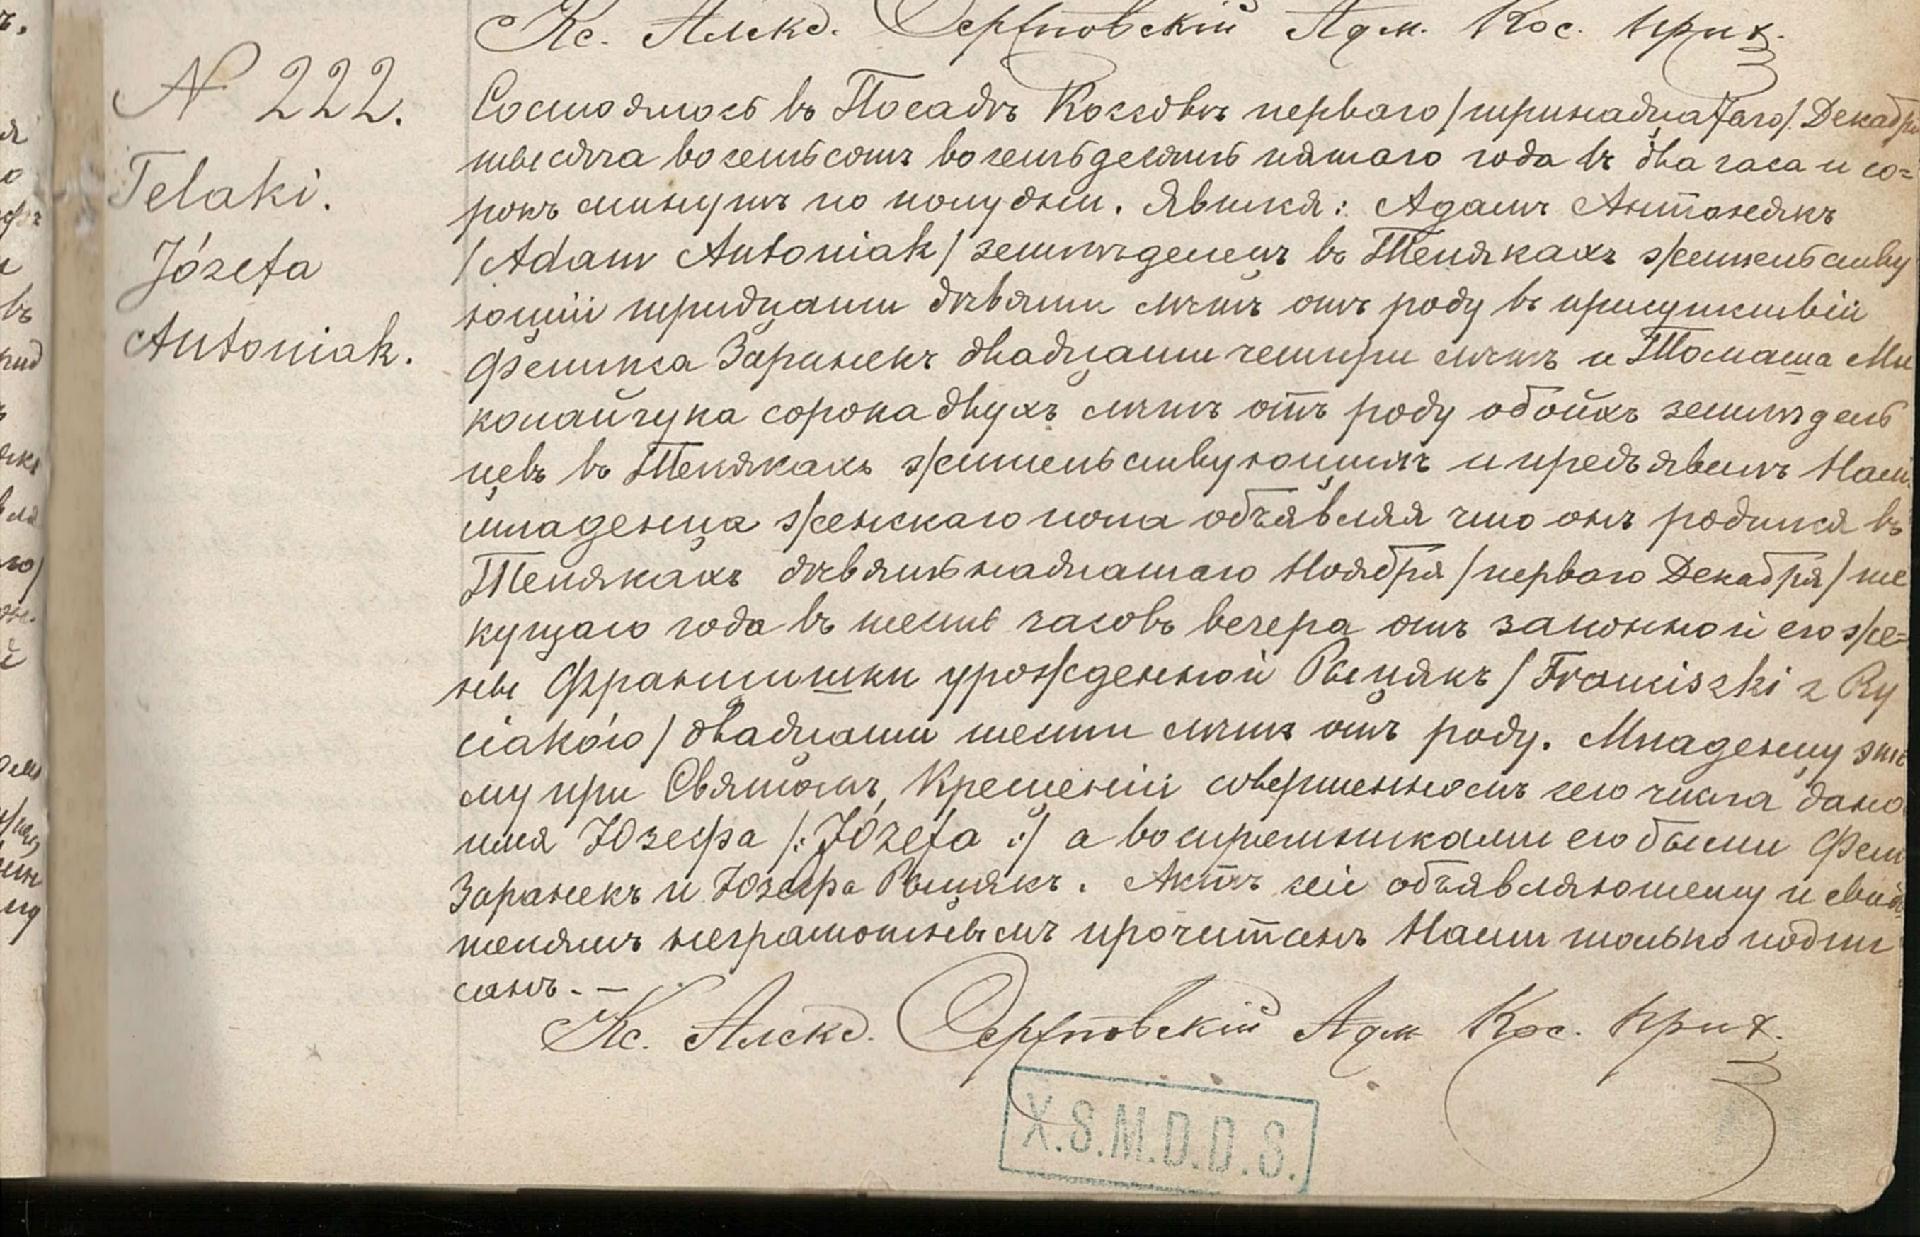 Кс. Алекс. Серпновскій Адм. Кос. прих.
N 222.
Telaki.
Józefa
Antoniak.
Состоялось въ Посадѣ Коссовѣ перваго /тринадцатаго/ Декабря
тысяча восемьсотъ восемьдесятъ пятаго года въ два часа и со=
рокъ минутъ по полудни. Явился: Адамъ Антонякъ
/Adam Antoniak/ земледелецъ въ Телякахъ жительству
ющій тридцати девяти лѣтъ отъ роду въ присутствіи
Феликса Заранекъ двадцати четыри лѣтъ и Томаша Ми
колайчука сорока двухъ лѣтъ отъ роду обоихъ земледель
цевъ въ Телякахъ жительствующихъ и предъявилъ Намъ
младенца женскаго пола объявляя что онъ родился въ
Телякахъ девятьнадцатаго Ноября /перваго Декабря/ те
кущаго года въ шесть часовъ вечера отъ законной его же=
ны Францишки урожденной Рыцякъ /Franciszki z Ry
ciaków/ двадцати шести лѣтъ отъ роду. Младенцу это
му при Святомъ Крещеніи совершенномъ сего числа дано
имя Юзефа /: Józefa :/ а воспріемниками его были
Заранекъ и Юзефа Рыцякъ. Актъ сей объявляющему и свидѣ
телямъ неграмотнымъ прочитанъ Нами только подпи
санъ. —
Кс. Алекс. Серпновскій Адм Кос. прих.
X.S.M.D.D.S.